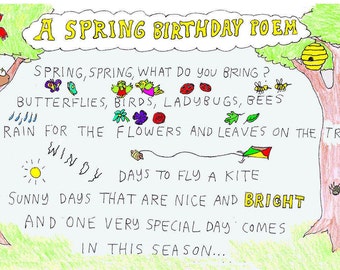 A SPRING BIRTHDAY POEM
SPRING, SPRING, WHAT DO YOU BRING?
BUTTERFLIES, BIRDS, LADYBUGS, BEES
RAIN FOR THE FLOWERS AND LEAVES ON THE TR
WINDY DAYS TO FLY A KITE
SUNNY DAYS THAT ARE NICE AND BRIGHT
AND ONE VERY SPECIAL DAY COMES
IN THIS SEASON...